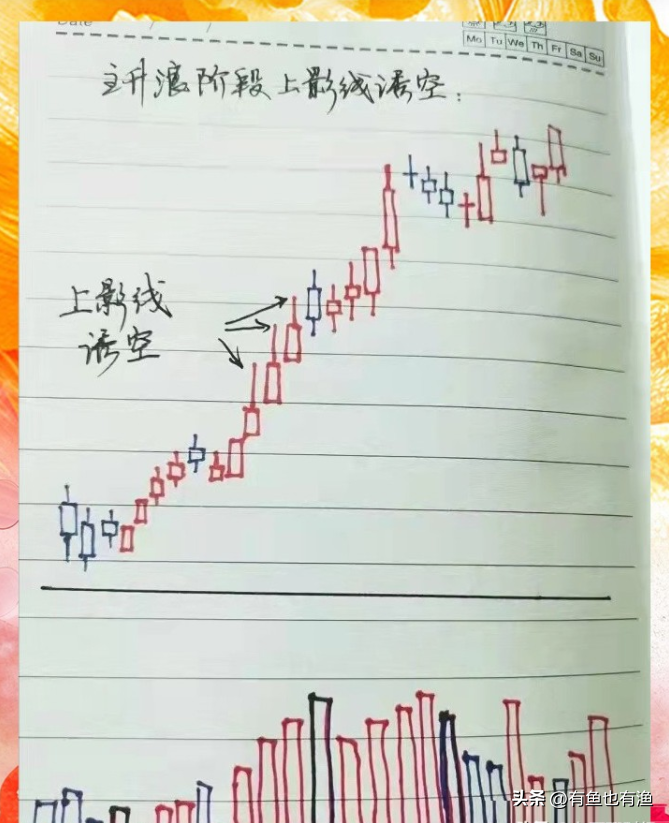 Date / /
Mo Tu We Th Fr Sa Su
主升浪阶段上影线诱空：
上影线
诱空
头条 @有鱼也有渔